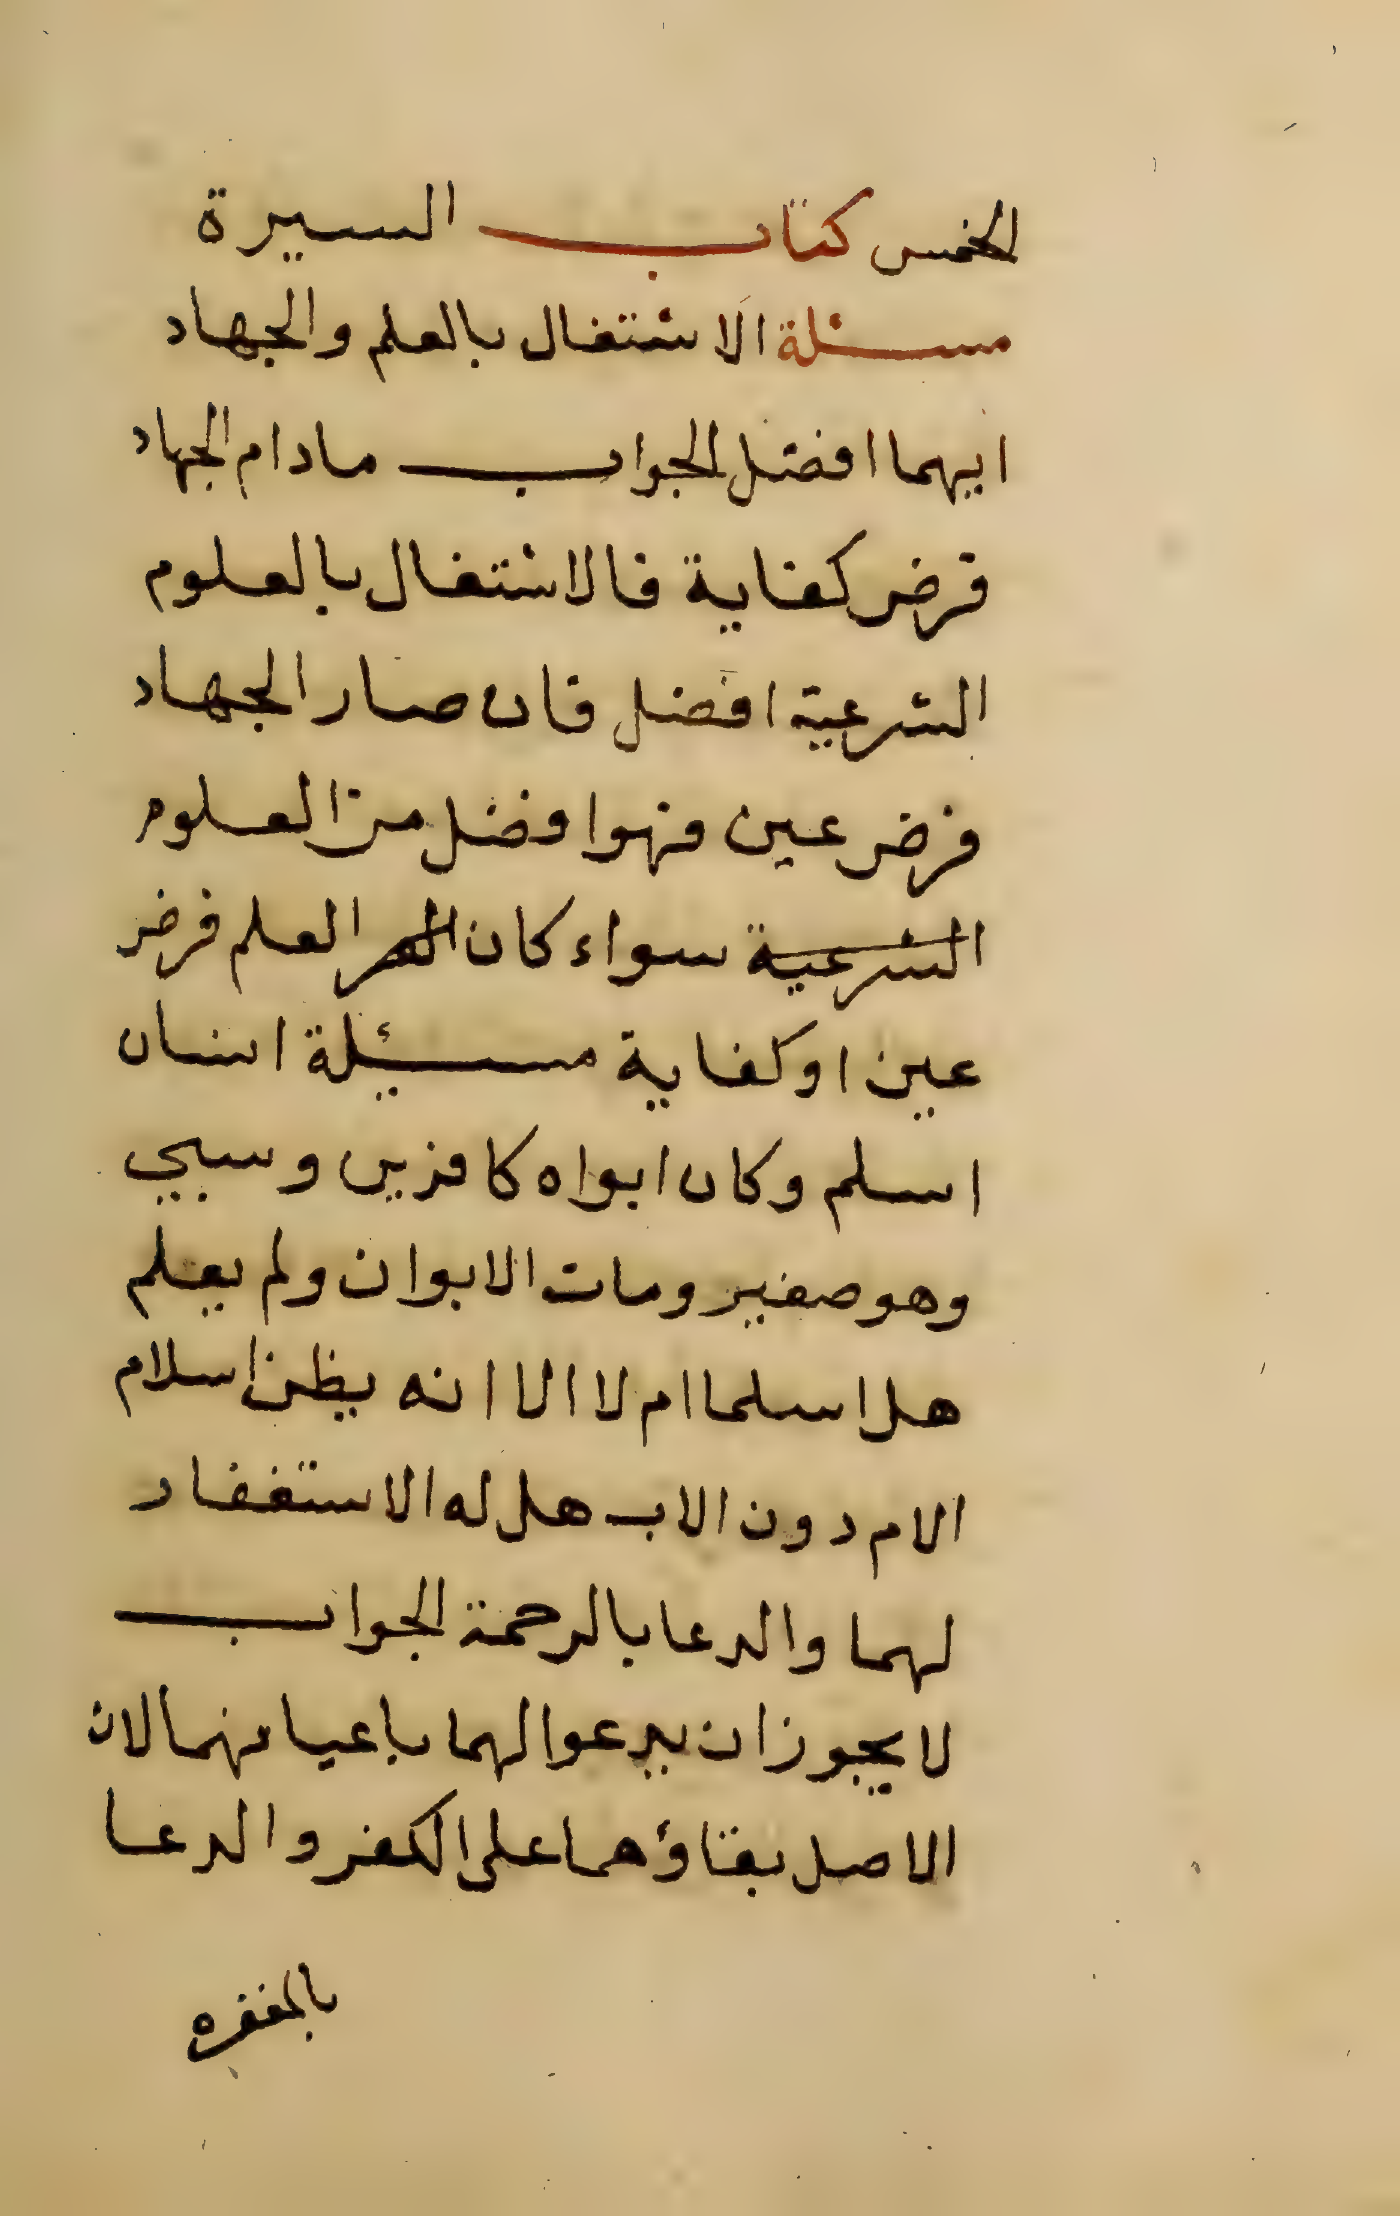 الخمس كتاب السيرة
مسئلة الاشتغال بالعلم والجهاد
ايهما افضل الجواب مادام الجهاد
فرض كفاية فالاشتغال بالعلوم
الشرعية افضل فان صار الجهاد
فرض عين فهوا فضل من العلوم
الشرعية سواء كان العلم فرض
عين او كفاية مسئلة انسان
اسلم وكان ابواه كافرين وسبي
وهو صغير ومات الابوان ولم يعلم
هل اسلما ام لا الا انه يظن اسلام
الام دون الاب هل له الاستغفار
لهما والدعا بالرحمة الجواب
لا يجوز ان يدعوا لهما باعيانهما لان
الاصل بقاؤهما على الكفر والدعا
بالمغفره